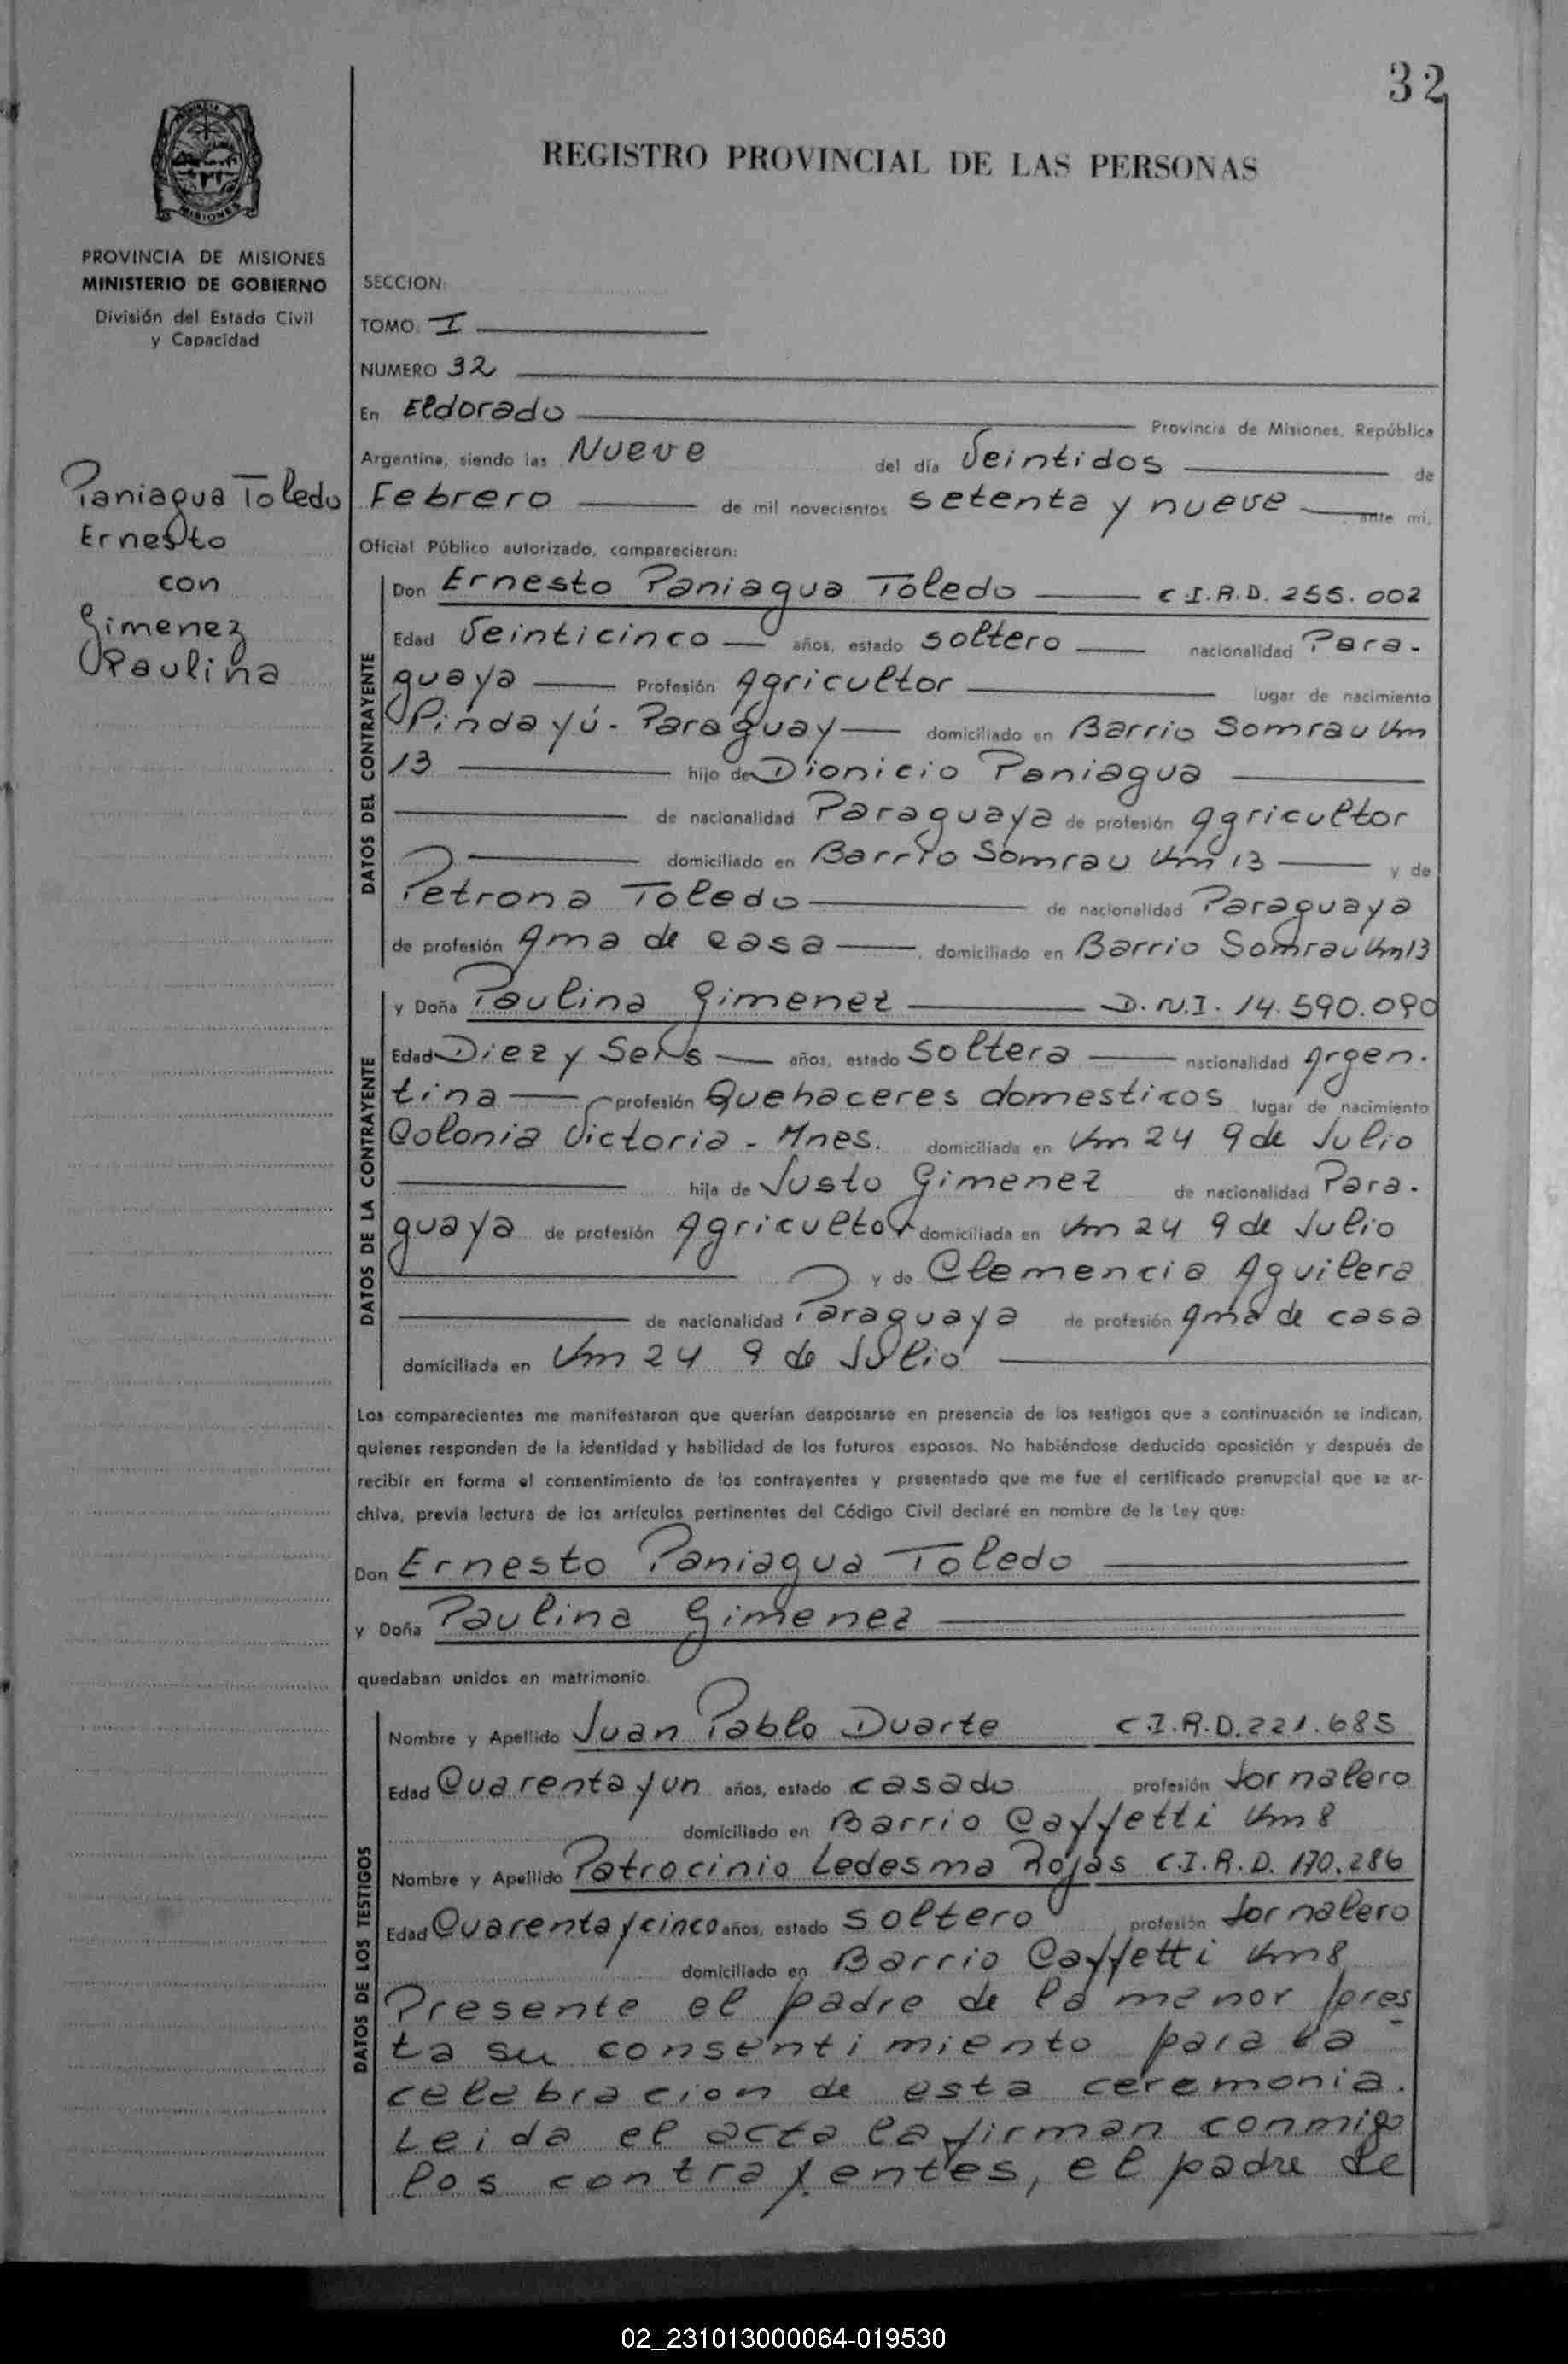 32
REGISTRO PROVINCIAL DE LAS PERSONAS
MISIONES
PROVINCIA DE MISIONES
MINISTERIO DE GOBIERNO
División del Estado Civil
y Capacidad
Paniagua Toledo
Ernesto
con
Gimenez
Paulina
SECCION:
TOMO: I
NUMERO 32
En Eldorado Provincia de Misiones, República
Argentina, siendo las Nueve del día Veintidos de
Febrero de mil novecientos setenta y nueve, ante mí,
Oficial Público autorizado, comparecieron:
DATOS DEL CONTRAYENTE
Don Ernesto Paniagua Toledo C.I.R.D. 255.002
Edad Veinticinco años, estado soltero nacionalidad Para-
guaya Profesión Agricultor lugar de nacimiento
Pindayú - Paraguay domiciliado en Barrio Somrau Km
13 hijo de Dionicio Paniagua
de nacionalidad Paraguaya de profesión Agricultor
domiciliado en Barrio Somrau Km 13 y de
Petrona Toledo de nacionalidad Paraguaya
de profesión Ama de casa, domiciliado en Barrio Somrau Km 13
DATOS DE LA CONTRAYENTE
y Doña Paulina Gimenez D.N.I. 14.590.090
Edad Diez y Seis años, estado soltera nacionalidad Argen-
tina profesión Quehaceres domesticos lugar de nacimiento
Colonia Victoria - Mnes. domiciliada en Km 24 9 de Julio
hija de Justo Gimenez de nacionalidad Para-
guaya de profesión Agricultor domiciliada en Km 24 9 de Julio
y de Clemencia Aguilera
de nacionalidad Paraguaya de profesión Ama de casa
domiciliada en Km 24 9 de Julio
Los comparecientes me manifestaron que querían desposarse en presencia de los testigos que a continuación se indican,
quienes responden de la identidad y habilidad de los futuros esposos. No habiéndose deducido oposición y después de
recibir en forma el consentimiento de los contrayentes y presentado que me fue el certificado prenupcial que se ar-
chiva, previa lectura de los artículos pertinentes del Código Civil declaré en nombre de la Ley que:
Don Ernesto Paniagua Toledo
y Doña Paulina Gimenez
quedaban unidos en matrimonio.
DATOS DE LOS TESTIGOS
Nombre y Apellido Juan Pablo Duarte C.I.R.D. 221.685
Edad Cuarenta y un años, estado casado profesión Jornalero
domiciliado en Barrio Caffetti Km 8
Nombre y Apellido Patrocinio Ledesma Rojas C.I.R.D. 170.286
Edad Cuarenta y cinco años, estado soltero profesión Jornalero
domiciliado en Barrio Caffetti Km 8
Presente el padre de la menor pres-
ta su consentimiento para la
celebracion de esta ceremonia.
Leida el acta la firman conmigo
los contrayentes, el padre de
02_231013000064-019530